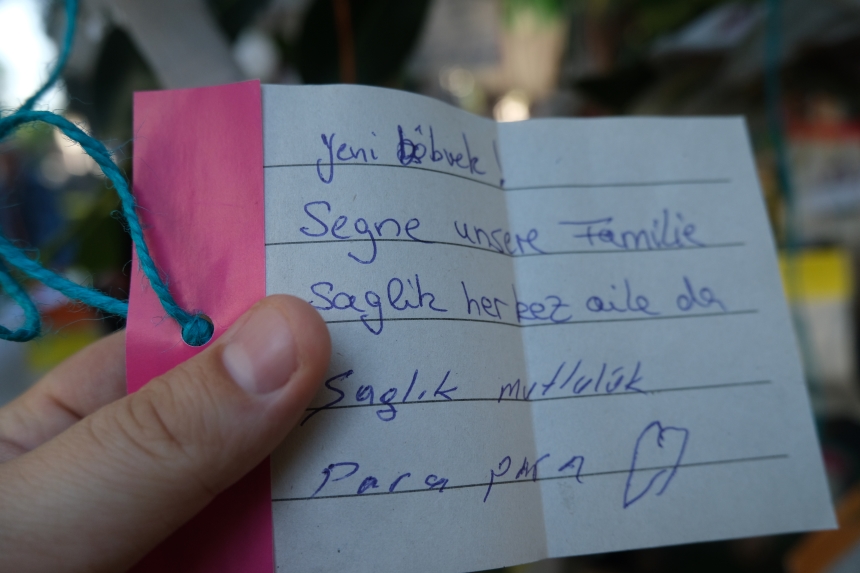 Yeni böbrek!
Segne unsere Familie
Saglik herkez aile da
Saglik mutluluk
Para para